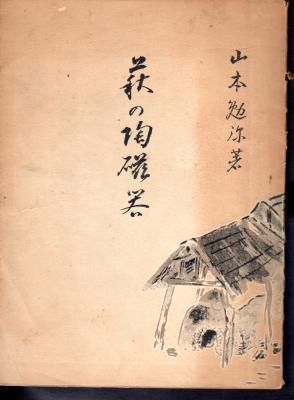 山本勉弥著
萩の陶磁器